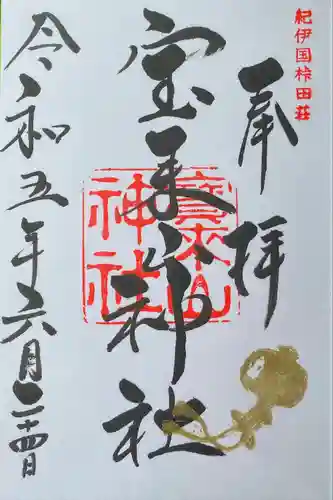 紀伊国桛田荘
奉拝
宝来山神社
寳来山神社
令和五年六月二十四日